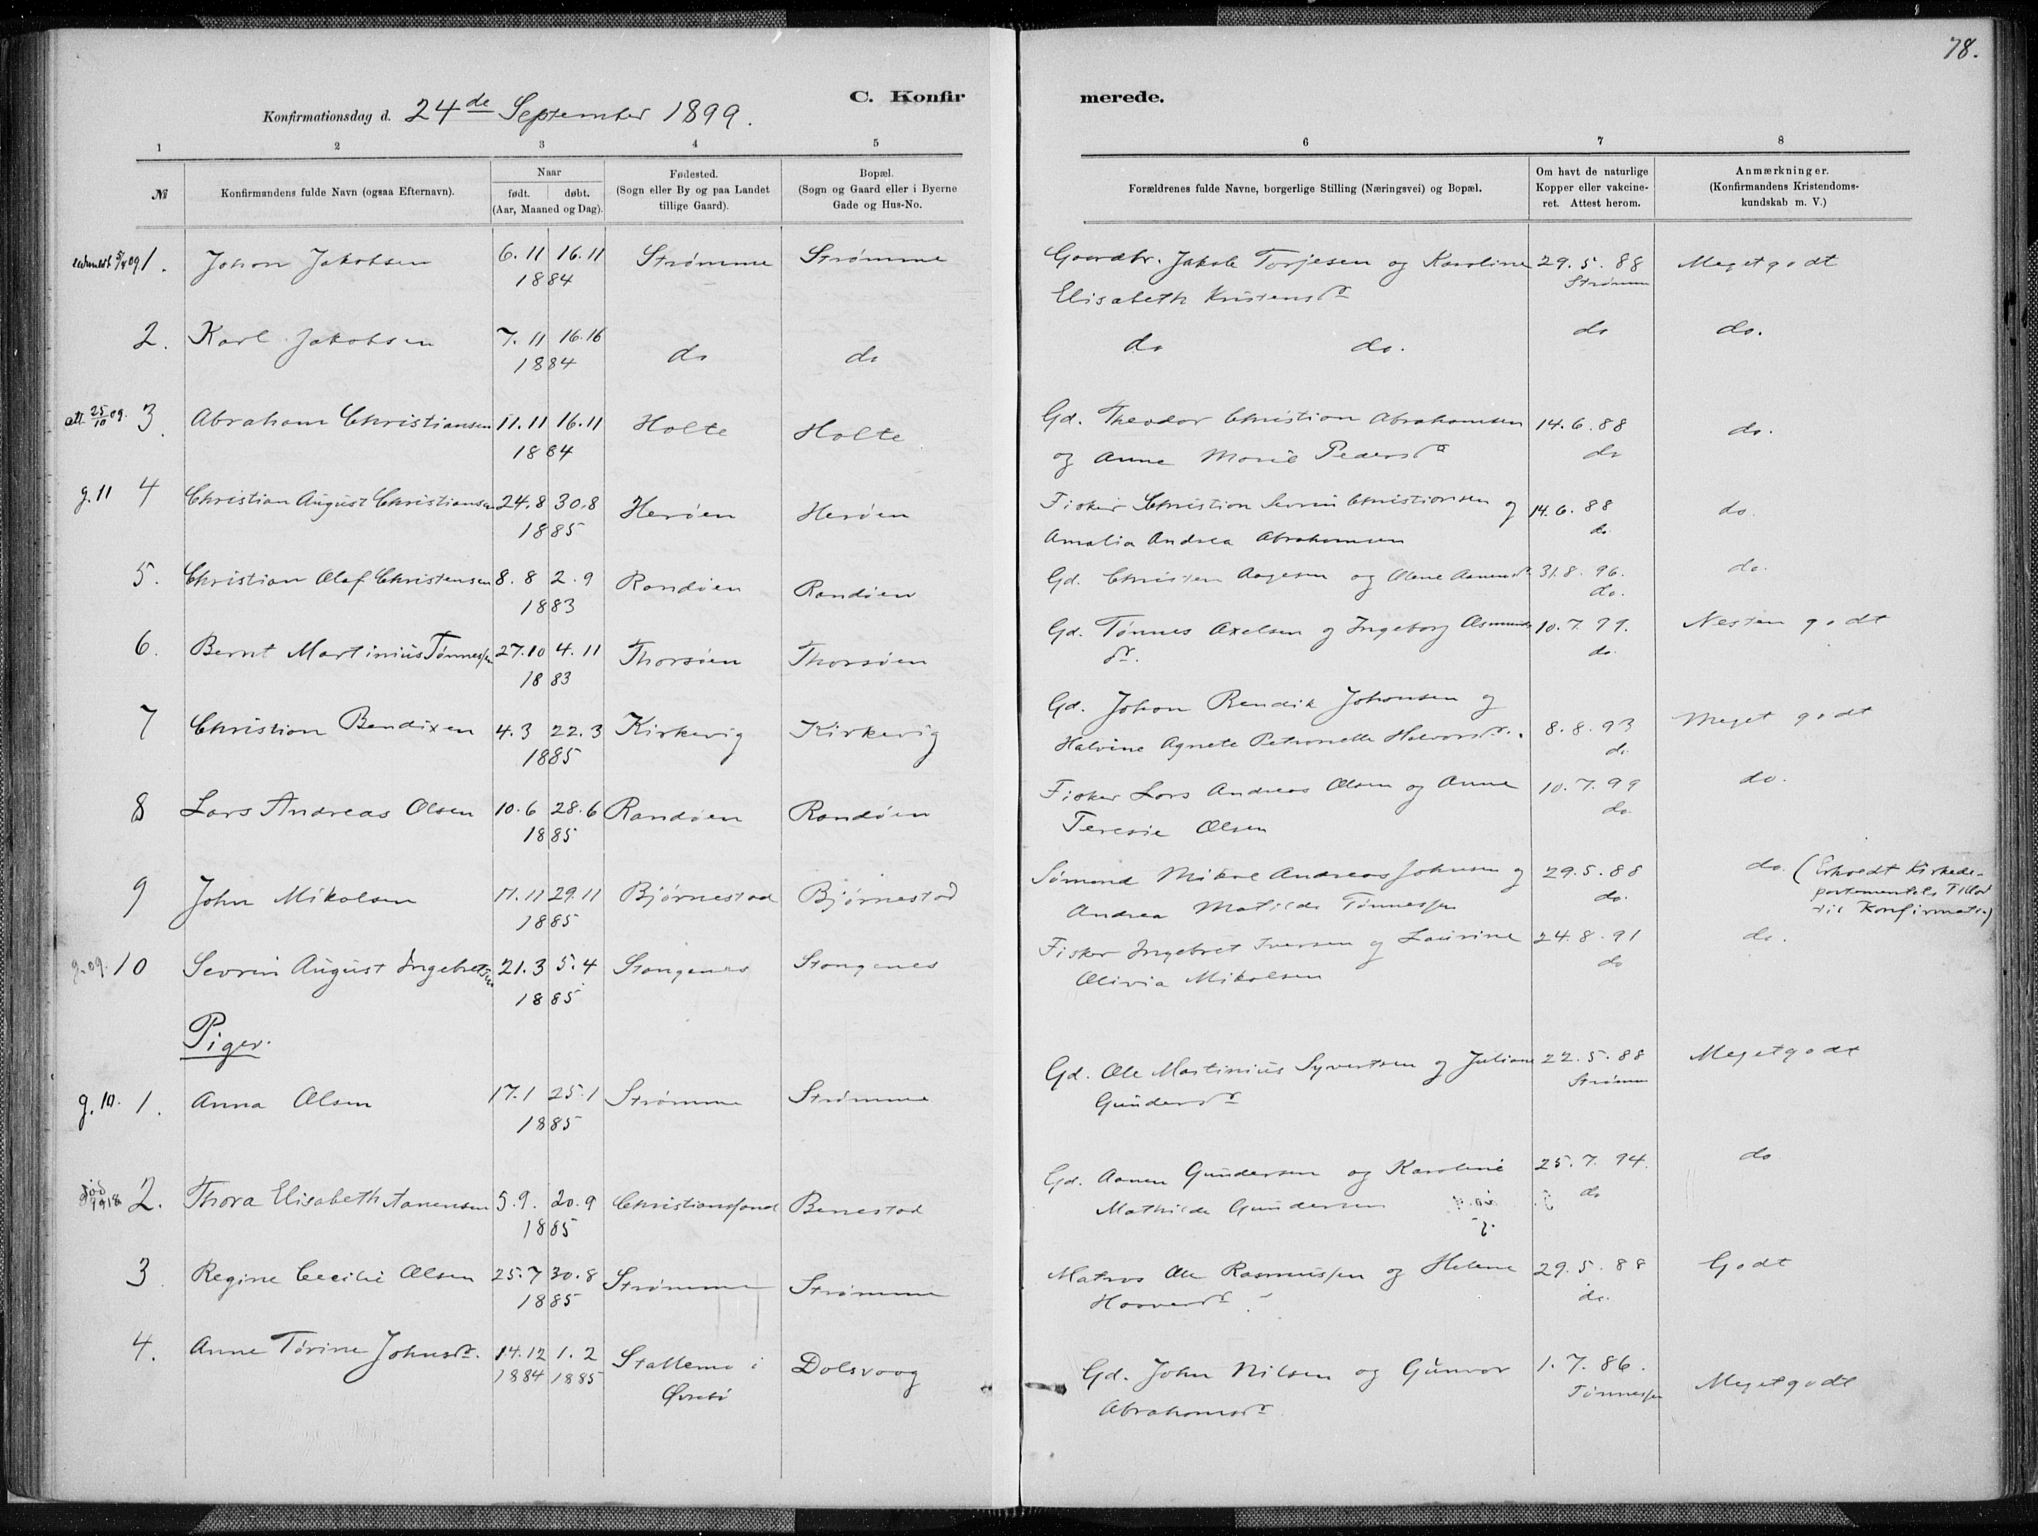 78.
C. Konfirmerede.
Konfirmationsdag d. 24de September 1899.
1 2 3 4 5 6 7 8
№
Konfirmandens fulde Navn (ogsaa Efternavn).
Naar
født. døbt.
(Aar, Maaned og Dag).
Fødested.
(Sogn eller By og paa Landet
tillige Gaard).
Bopæl.
(Sogn og Gaard eller i Byerne
Gade og Hus-No.
Forældrenes fulde Navne, borgerlige Stilling (Næringsvei) og Bopæl.
Om havt de naturlige
Kopper eller vakcine-
ret. Attest herom.
Anmærkninger.
(Konfirmandens Kristendoms-
kundskab m. V.)
1. Johan Jakobsen 6.11 16.11 Strømme Strømme Gaardbr. Jakob Torjesen og Karoline 29.5.88 Meget godt
1884 Elisabeth Kristensdr Strømm
2. Karl Jakobsen 7.11 16.16 do do do do. do do.
1884
att 25/10 09. 3. Abraham Christiansen 11.11 16.11 Holte Holte Gd. Theodor Christian Abrahamsen 14.6.88 do.
1884 og Anne Marie Pedersdr do
g. 11 4 Christian August Christiansen 24.8 30.8 Herøen Herøen Fisker Christian Sevrin Christiansen og 14.6.88 do.
1885 Amalia Andrea Abrahamsen do
5. Christian Olaf Christensen 8.8 2.9 Randøen Randøen Gd. Christen Aagesen og Olene Aanensdr 31.8.96. do.
1883 do.
6. Bernt Martinius Tønnessen 27.10 4.11 Thorsøen Thorsøen Gd. Tønnes Axelsen og Ingeborg Asmunds 10.7.99. Nesten godt
1883 dr. do.
7 Christian Bendixen 4.3 22.3 Kirkevig Kirkevig Gd. Johan Bendik Johansen og
1885 Halvine Agnete Petronelle Halvorsdr. 8.8.93 Meget godt
do.
8 Lars Andreas Olsen 10.6 28.6 Randøen Randøen Fisker Lars Andreas Olsen og Anne 10.7.99 do.
1885 Teresie Olsen do
9 John Mikalsen 17.11 29.11 Bjørnestad Bjørnestad Sømand Mikal Andreas Johnsen og 29.5.88 do. (Erholdt Kirkede-
1885 Andrea Matilde Tønnessen do. partementets Tillad
til Konfirmat.)
g. 09. 10 Sevrin August Ingebretsen 21.3 5.4 Stangenes Stangenes Fisker Ingebret Iversen og Laurine 24.8.91 do.
1885 Olivia Mikalsen do
Piger.
g. 10. 1. Anna Olsen 17.1 25.1 Strømme Strømme Gd. Ole Martinius Syvertsen og Juliane 22.5.88 Meget godt
1885 Gundersdr Strømm
død 1918 2. Thora Elisabeth Aanensen 5.9. 20.9 Christianssand Benestad Gd. Aanen Gundersen og Karoline 25.7.94. do
1885 Mathilde Gundersen do
3 Regine Cecilie Olsen 25.7 30.8 Strømme Strømme Matros Ole Rasmussen og Helene 29.5.88 Godt
1885 Haaversdr. do.
4. Anne Tørine Johnsdr. 14.12 1.2 Stallemo i Dolsvaag Gd. John Nilsen og Gunvor 1.7.86. Meget godt
1884 1885 Øvrebø Abrahamsdr Tønnessen